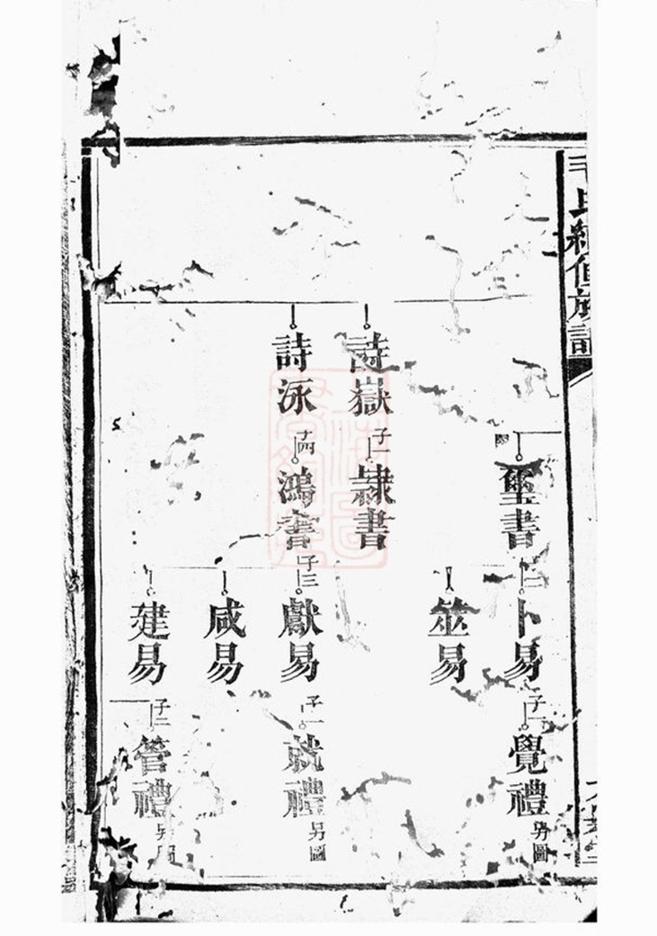 毛氏續修族譜
璽書
卜易
子一
覺禮
另圖
筮易
詩嶽
子一
隷書
詩泳
子四
鴻書
子三
獻易
子一
就禮
另圖
咸易
建易
子二
管禮
另圖